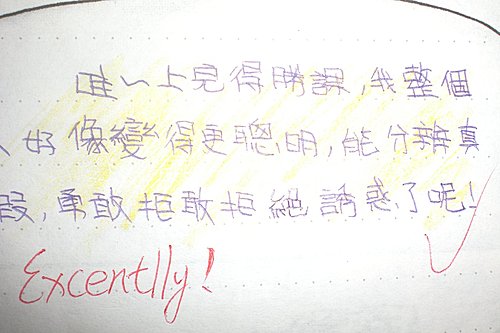 上得勝課,我整個
人好像變得更聰明,能分辨真
假,勇敢拒敢拒絕誘惑了呢!
Excentlly!